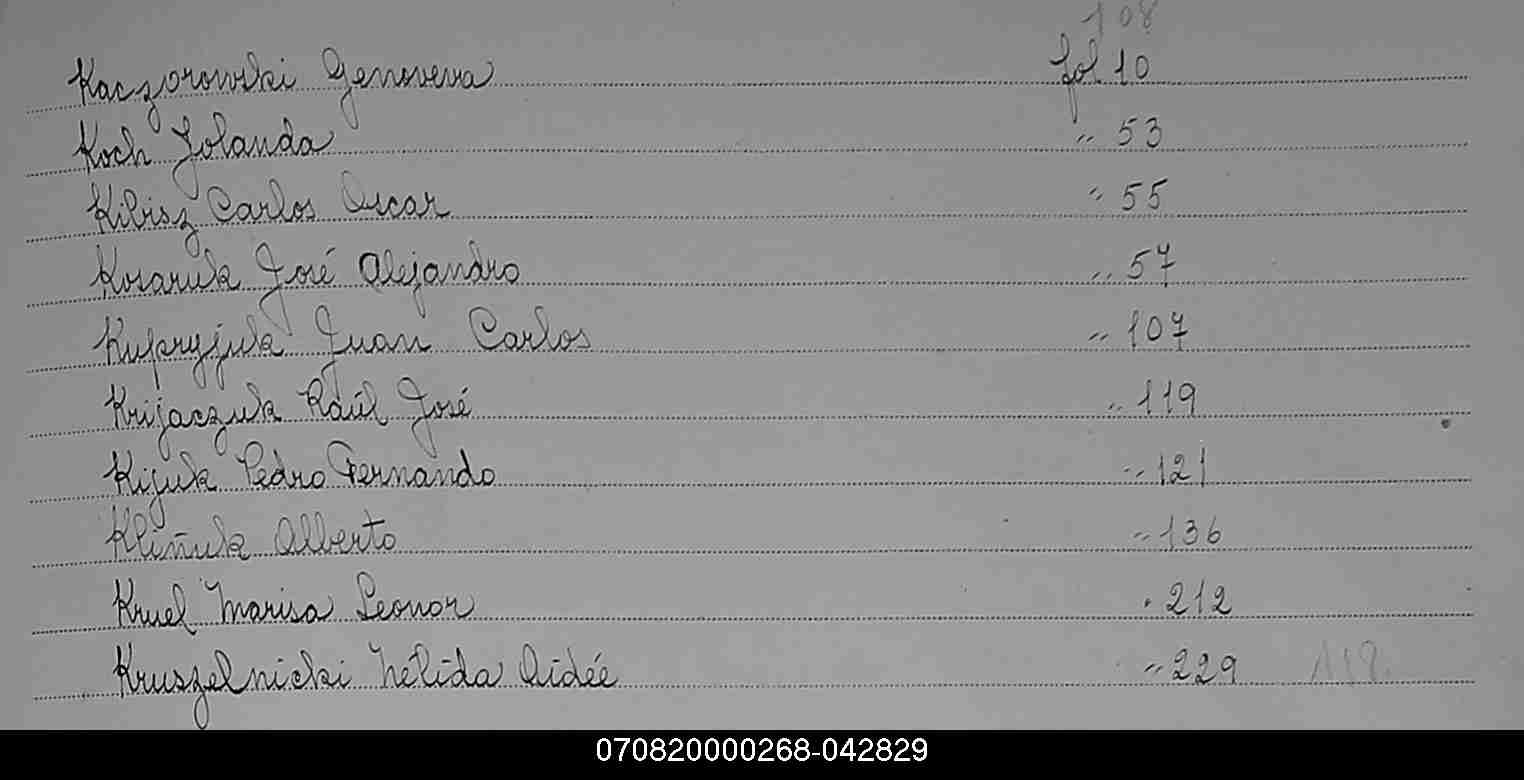 108
Kaczorowski Genoveva fol 10
Koch Jolanda " 53
Kibisz Carlos Oscar " 55
Kosaruk José Alejandro " 57
Kupryjuk Juan Carlos " 107
Krijaczuk Raúl José " 119
Kijuk Pedro Fernando " 121
Kliñuk Alberto " 136
Kruel Marisa Leonor " 212
Kruszelnicki Nélida Aidée " 229 118
070820000268-042829